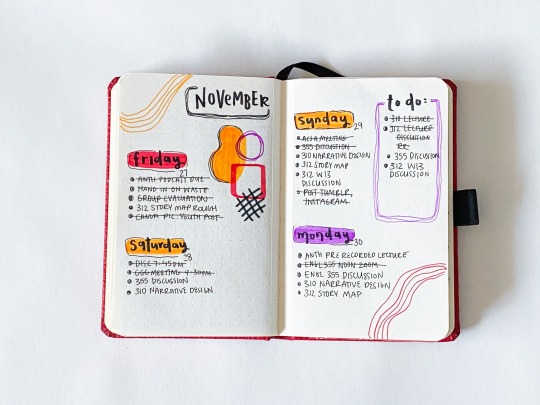 NOVEMBER
friday
27
ANTH PODCAST DUE
HAND IN ON WASTE
GROUP EVALUATION
312 STORY MAP ROUGH
CAMPA PIC. YOUTH POST
saturday
28
DISC 7:45PM
GGG MEETING 4-30PM
355 DISCUSSION
310 NARRATIVE DESIGN
sunday
29
MEETING
355 DISCUSSION
310 NARRATIVE DESIGN
312 STORY MAP
312 W13
DISCUSSION
POST TUMBLR,
INSTAGRAM
monday
30
ANTH PRE RECORDED LECTURE
ENGL 355 NOON ZOOM
ENGL 355 DISCUSSION
310 NARRATIVE DESIGN
312 STORY MAP
to do:
310 LECTURE
312 LECTURE
DISCUSSION
RR
355 DISCUSSION
312 W13
DISCUSSION